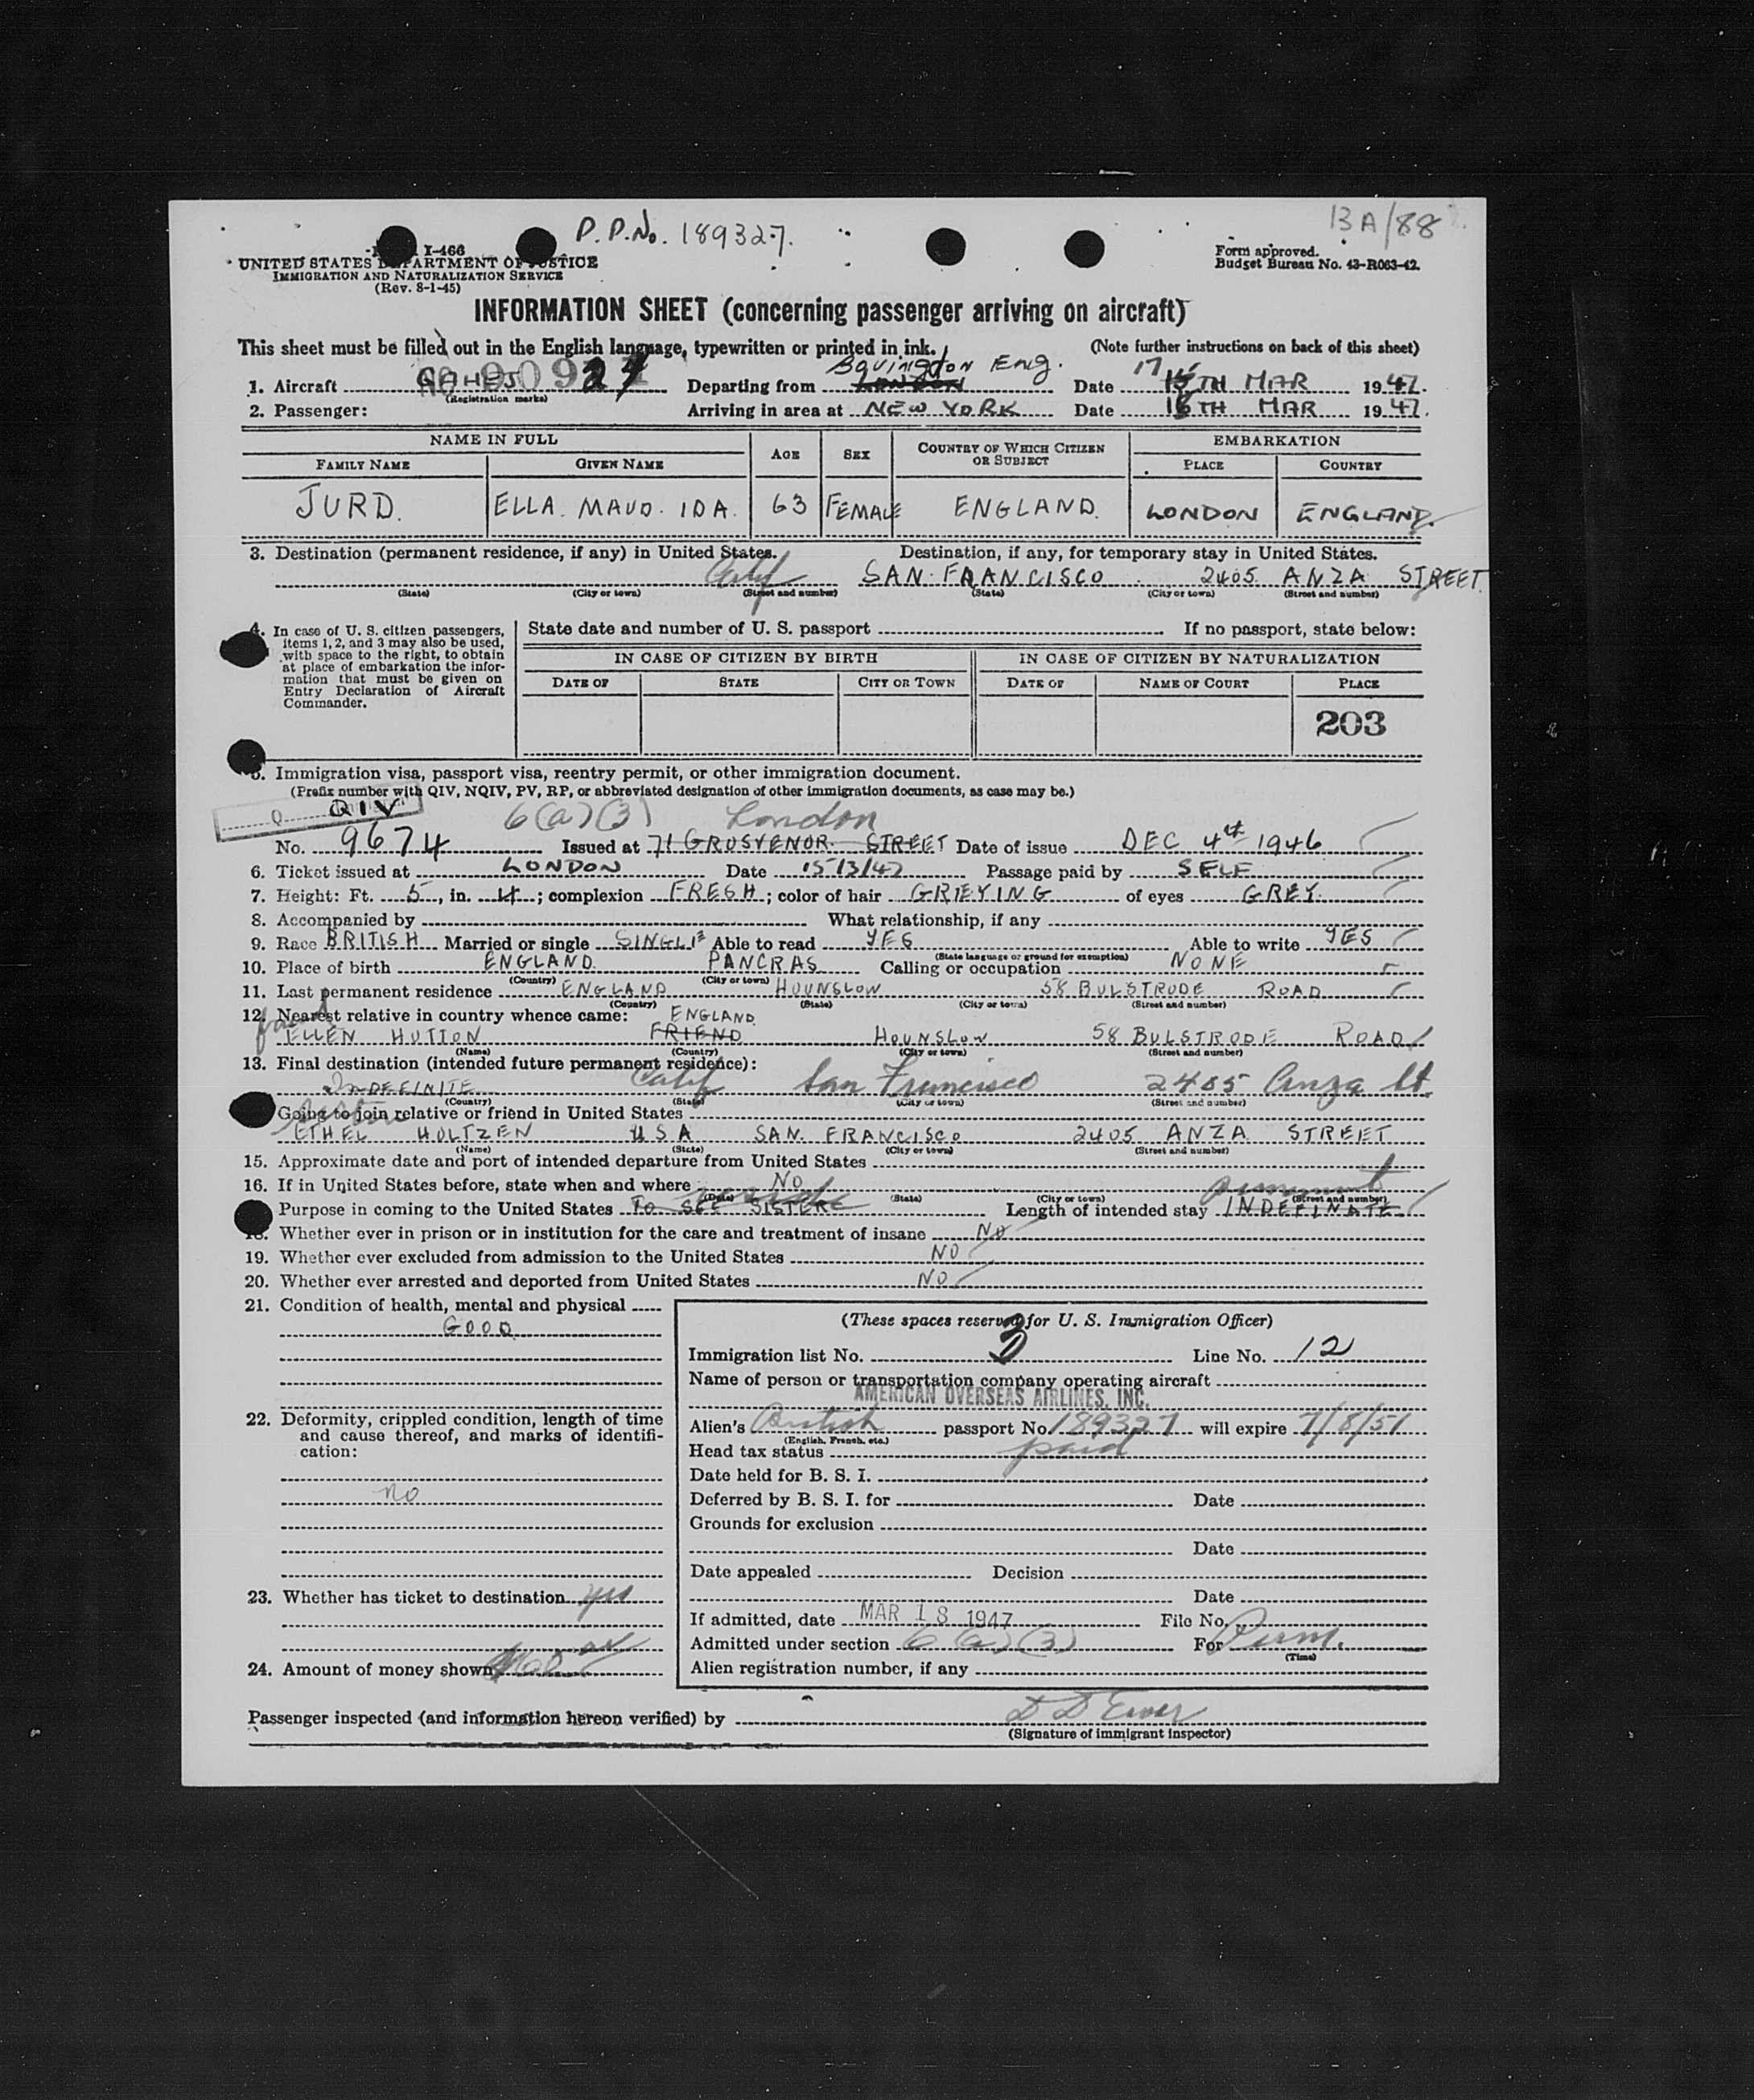 P.P.No. 189327.
13A/88
I-466
UNITED STATES DEPARTMENT OF JUSTICE
IMMIGRATION AND NATURALIZATION SERVICE
(Rev. 8-1-45)
Form approved.
Budget Bureau No. 43-R063-42.
INFORMATION SHEET (concerning passenger arriving on aircraft)
This sheet must be filled out in the English language, typewritten or printed in ink. (Note further instructions on back of this sheet)
Eng.
1. Aircraft Departing from LONDON Date 17 TH MAR 1947.
(Registration marks)
2. Passenger: Arriving in area at NEW YORK Date 18TH MAR 1947.
NAME IN FULL AGE SEX COUNTRY OF WHICH CITIZEN OR SUBJECT EMBARKATION
FAMILY NAME GIVEN NAME PLACE COUNTRY
JURD. ELLA. MAUD. IDA. 63 FEMALE ENGLAND. LONDON ENGLAND.
3. Destination (permanent residence, if any) in United States. Destination, if any, for temporary stay in United States.
Calif SAN. FRANCISCO 2405 ANZA STREET.
(State) (City or town) (Street and number) (State) (City or town) (Street and number)
4. In case of U. S. citizen passengers, items 1, 2, and 3 may also be used, with space to the right, to obtain at place of embarkation the information that must be given on Entry Declaration of Aircraft Commander.
State date and number of U. S. passport If no passport, state below:
IN CASE OF CITIZEN BY BIRTH IN CASE OF CITIZEN BY NATURALIZATION
DATE OF STATE CITY OR TOWN DATE OF NAME OF COURT PLACE
203
5. Immigration visa, passport visa, reentry permit, or other immigration document.
(Prefix number with QIV, NQIV, PV, RP, or abbreviated designation of other immigration documents, as case may be.)
QIV 6(a)(3) London
No. 9674 Issued at 71 GROSVENOR STREET Date of issue DEC 4th 1946
6. Ticket issued at LONDON Date 15/3/47 Passage paid by SELF
7. Height: Ft. 5, in. 4; complexion FRESH; color of hair GREYING of eyes GREY.
8. Accompanied by What relationship, if any
9. Race BRITISH Married or single SINGLE Able to read YES Able to write YES
(State language or ground for exemption)
10. Place of birth ENGLAND. PANCRAS Calling or occupation NONE
(Country) (City or town)
11. Last permanent residence ENGLAND HOUNSLOW 58 BULSTRODE ROAD
(Country) (State) (City or town) (Street and number)
12. Nearest relative in country whence came: ENGLAND.
friend ELLEN HUTTON FRIEND HOUNSLOW 58 BULSTRODE ROAD
(Name) (Country) (City or town) (Street and number)
13. Final destination (intended future permanent residence):
INDEFINITE Calif San Francisco 2405 Anza St.
(Country) (State) (City or town) (Street and number)
Going to join relative or friend in United States
ETHEL HOLTZEN USA SAN. FRANCISCO 2405 ANZA STREET
(Name) (State) (City or town) (Street and number)
15. Approximate date and port of intended departure from United States
16. If in United States before, state when and where NO
(Date) (State) (City or town) (Street and number)
reside permanent
Purpose in coming to the United States TO SEE SISTER Length of intended stay INDEFINATE
18. Whether ever in prison or in institution for the care and treatment of insane No
19. Whether ever excluded from admission to the United States NO
20. Whether ever arrested and deported from United States NO
21. Condition of health, mental and physical
GOOD.
22. Deformity, crippled condition, length of time and cause thereof, and marks of identification:
no
23. Whether has ticket to destination yes
24. Amount of money shown
(These spaces reserved for U. S. Immigration Officer)
Immigration list No. 3 Line No. 12
Name of person or transportation company operating aircraft
AMERICAN OVERSEAS AIRLINES, INC.
Alien's British passport No. 189327 will expire 7/8/51
(English, French, etc.)
Head tax status paid
Date held for B. S. I.
Deferred by B. S. I. for Date
Grounds for exclusion
Date
Date appealed Decision
Date
If admitted, date MAR 18 1947 File No.
Admitted under section 6(a)(3) For Perm.
(Time)
Alien registration number, if any
Passenger inspected (and information hereon verified) by
(Signature of immigrant inspector)